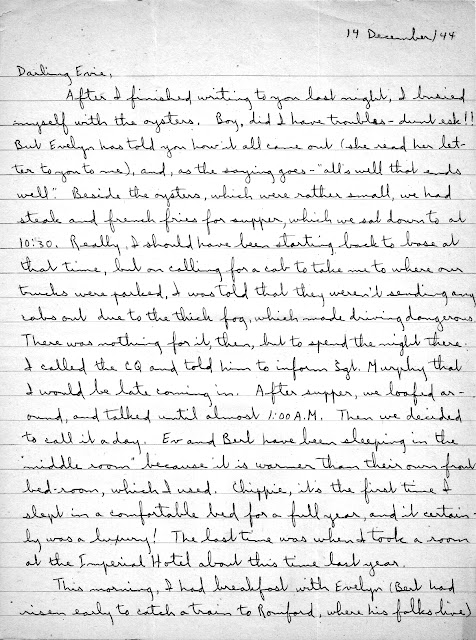 14 December/44
Darling Evie,
After I finished writing to you last night, I busied
myself with the oysters. Boy, did I have troubles - dunt esk!!
But Evelyn has told you how it all came out (she read her let-
ter to you to me), and, as the saying goes - "all's well that ends
well". Beside the oysters, which were rather small, we had
steak and french fries for supper, which we sat down to at
10:30. Really, I should have been starting back to base at
that time, but on calling for a cab to take me to where our
trucks were parked, I was told that they weren't sending any
cabs out due to the thick fog, which made driving dangerous.
There was nothing for it, then, but to spend the night there.
I called the CQ and told him to inform Sgt. Murphy that
I would be late coming in. After supper, we loafed ar-
ound, and talked until almost 1:00 A.M. Then we decided
to call it a day. Ev and Bert have been sleeping in the
"middle room" because it is warmer than their own front
bed-room, which I used. Chippie, it's the first time I
slept in a comfortable bed for a full year, and it certain-
ly was a luxury! The last time was when I took a room
at the Imperial Hotel about this time last year.
This morning, I had breakfast with Evelyn (Bert had
risen early to catch a train to Romford, where his folks live)